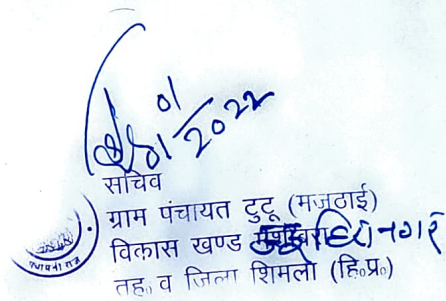 01/01/2022
सचिव
ग्राम पंचायत टुटू (मजठाई)
विकास खण्ड टुटू हिरानगर
तह० व जिला शिमला (हि०प्र०)
पंचायती राज